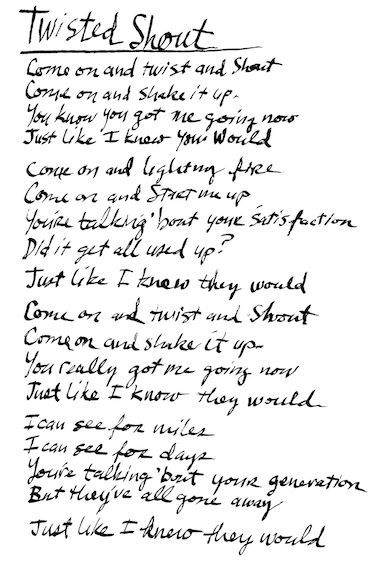 Twisted Shout
Come on and twist and Shout
Come on and shake it up.
You know you got me going now
Just like I knew you would
Come on and lighting fire
Come on and Start me up
You're talking 'bout your satisfaction
Did it get all used up?
Just like I knew they would
Come on and twist and Shout
Come on and shake it up.
You really got me going now
Just like I know they would.
I can see for miles
I can see for days
You're talking 'bout your generation
But they've all gone away
Just like I knew they would